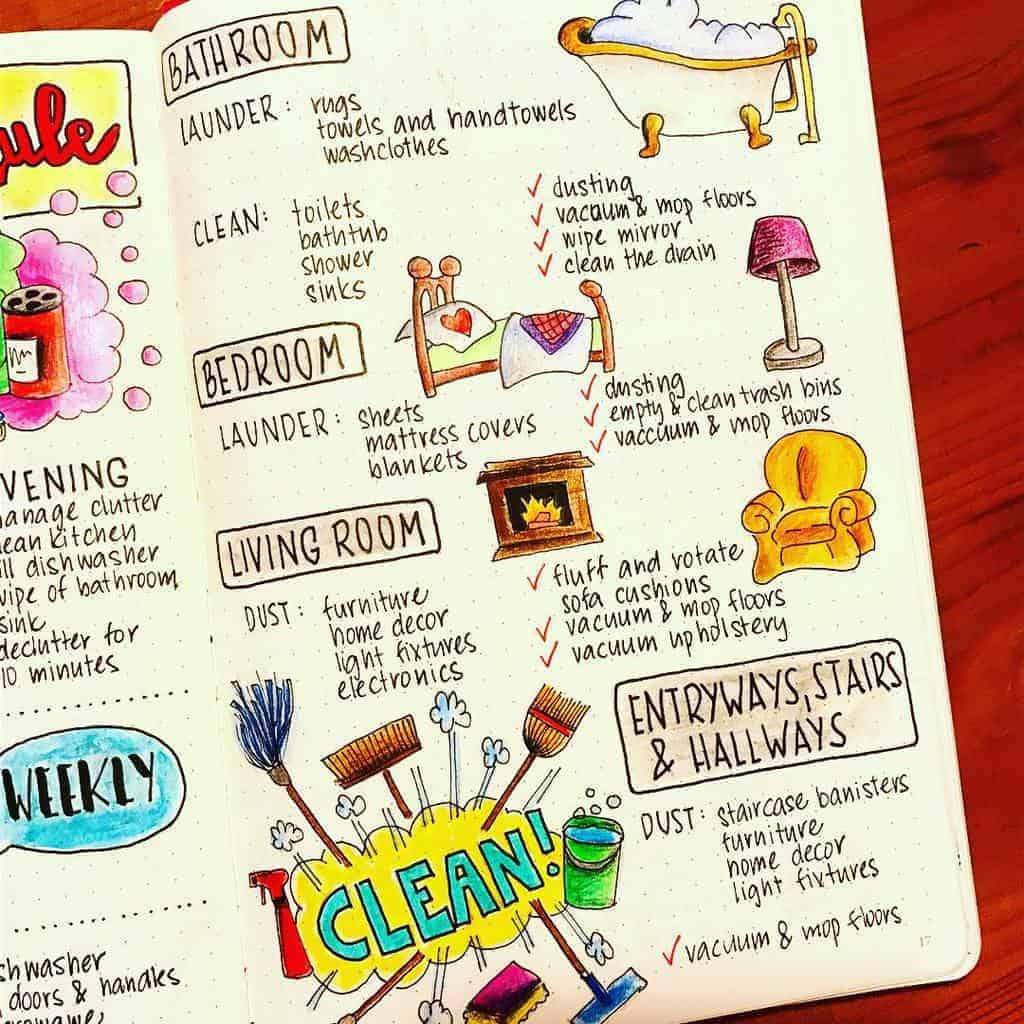 VENING
anage clutter
ean kitchen
ill dishwasher
wipe of bathroom
sink
declutter for
10 minutes
WEEKLY
shwasher
doors & handles
BATHROOM
LAUNDER: rugs
towels and handtowels
washclothes
CLEAN: toilets
bathtub
shower
sinks
✓ dusting
✓ vacuum & mop floors
✓ wipe mirror
✓ clean the drain
BEDROOM
LAUNDER: sheets
mattress covers
blankets
✓ dusting
✓ empty & clean trash bins
✓ vaccuum & mop floors
LIVING ROOM
DUST: furniture
home decor
light fixtures
electronics
✓ fluff and rotate
sofa cushions
✓ vacuum & mop floors
✓ vacuum upholstery
ENTRYWAYS, STAIRS
& HALLWAYS
DUST: staircase banisters
furniture
home decor
light fixtures
✓ vacuum & mop floors
CLEAN!
17